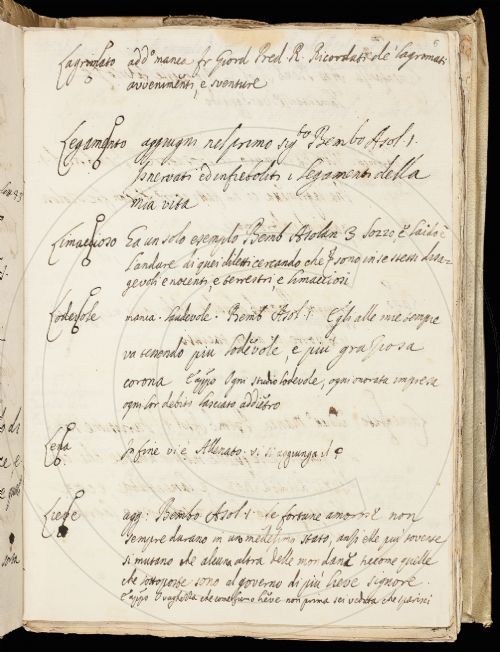 6
Lagrimato add.o manca fr Giord Pred. R. Ricordati de' lagrimati
avvenimenti, e sventure
Legamento aggiugni nel primo sig.to Bembo Asol. 1.
Snervati ed infieboliti i legamenti della
mia vita
Limaccioso Ha un solo esempio Bemb Asolan 3 Sozzo, è
l'andare di quei diletti cercando che sono in se stessi
e nocenti, e terrestri, e limacciosi
Lodevole manca. Laudevole. Bemb Asol. 1. Egli alle mie tempie
va tenendo più lodevole, e più graziosa
corona E appo Ogni studio lodevole, ogni onorata impresa
ogni lor debito lasciato addietro
Lena In fine vi è Allenato. vi si aggiunga il
Lieve agg: Bembo Asol. 1. le fortune amorose non
sempre durano in un medesimo stato, anzi elle più sovente
si mutano che alcuna altra delle mondane siccome quelle
che sottoposte sono al governo di più lieve signore.
E appo O vaghezza che come fumo lieve non prima sei veduta che sparisci